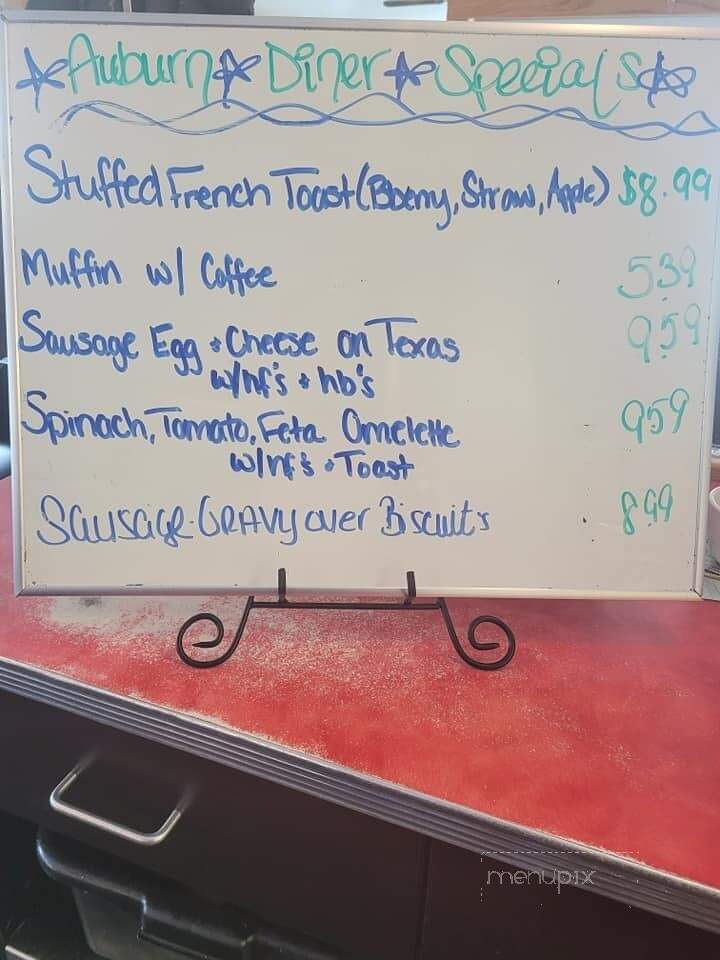 Auburn Diner Specials
Stuffed French Toast (Bberry, Straw, Apple) $8.99
Muffin w/ Coffee 5.39
Sausage Egg + Cheese on Texas 9.59
w/hf's + hb's
Spinach, Tomato, Feta Omelette 959
w/hf's + Toast
Sausage-GRAVY over Biscuits 8.99
menupix